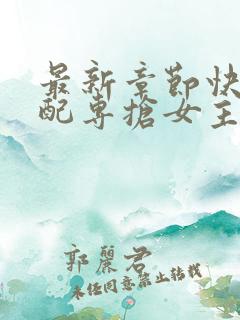 最新章節快
配專搶女主
郭麗君
未经同意禁止转载